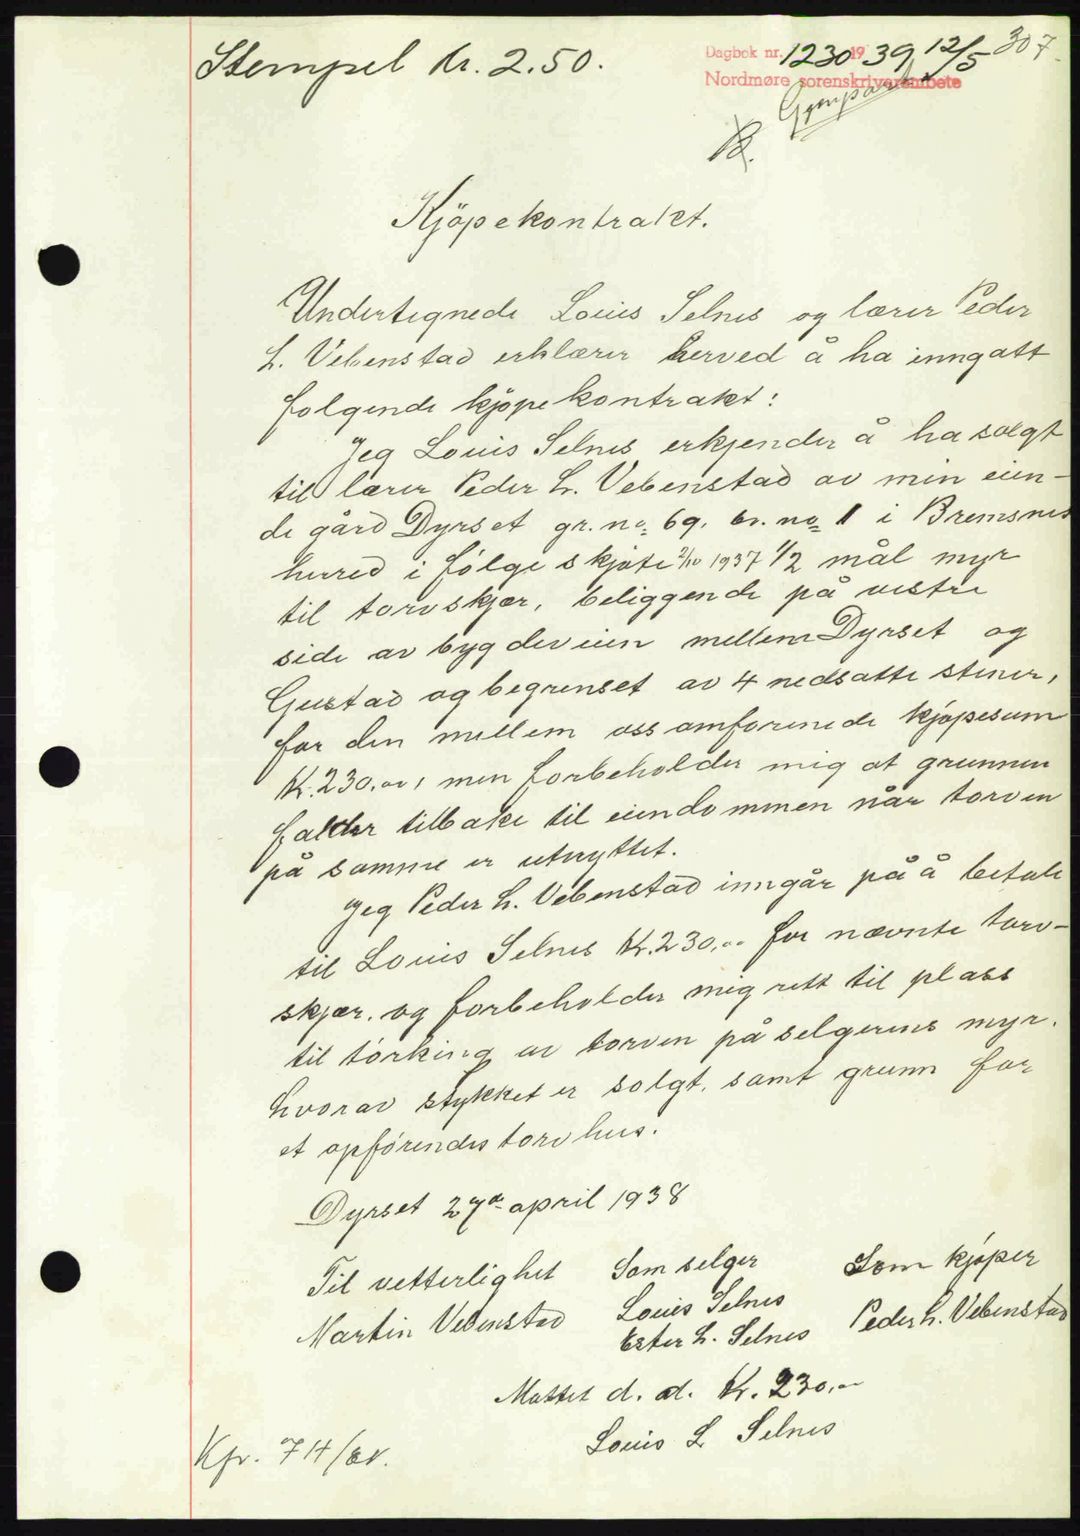 Stempel kr. 2.50.
Dagbok nr. 1230 19 39 12/5 307.
Nordmøre sorenskriverembete
Gjenpart
B.
Kjöpekontrakt.
Undertegnede Louis Selnes og lærer Peder
L. Vebenstad erklærer herved å ha inngått
følgende kjöpekontrakt:
Jeg Louis Selnes erkjender å ha solgt
til lærer Peder L. Vebenstad av min eien-
de gård Dyrset gr. no. 69. br. no. 1 i Bremsnes
herred i følge skjøte 2/10 1937 1/2 mål myr
til torvskjær, beliggende på vestre
side av bygdeveien mellem Dyrset og
Gustad og begrenset av 4 nedsatte stener,
for den mellem oss omforenede kjøpesum
Kr. 230,00, men forbeholder mig at grunnen
falder tilbake til eiendommen når torven
på samme er utnyttet.
Jeg Peder L. Vebenstad inngår på å betale
til Louis Selnes Kr. 230,00 for nævnte torv-
skjær. og forbeholder mig rett til plass
til törking av torven på selgerens myr.
hvorav stykket er solgt. samt grunn for
et opförendes torvhus.
Dyrset 27de april 1938
Til vetterlighet Som selger Som kjøper
Martin Vebenstad Louis Selnes Peder L. Vebenstad
Ester L. Selnes
Mottet d. d. Kr. 230,00
Louis L Selnes
Kfr. 74/